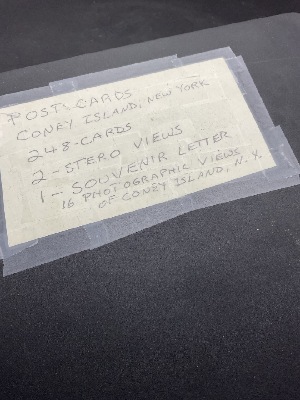 POST CARDS
CONEY ISLAND, NEW YORK
248-CARDS
2-STERO VIEWS
1-SOUVENIR LETTER
16 PHOTOGRAPHIC VIEWS
OF CONEY ISLAND, N.Y.